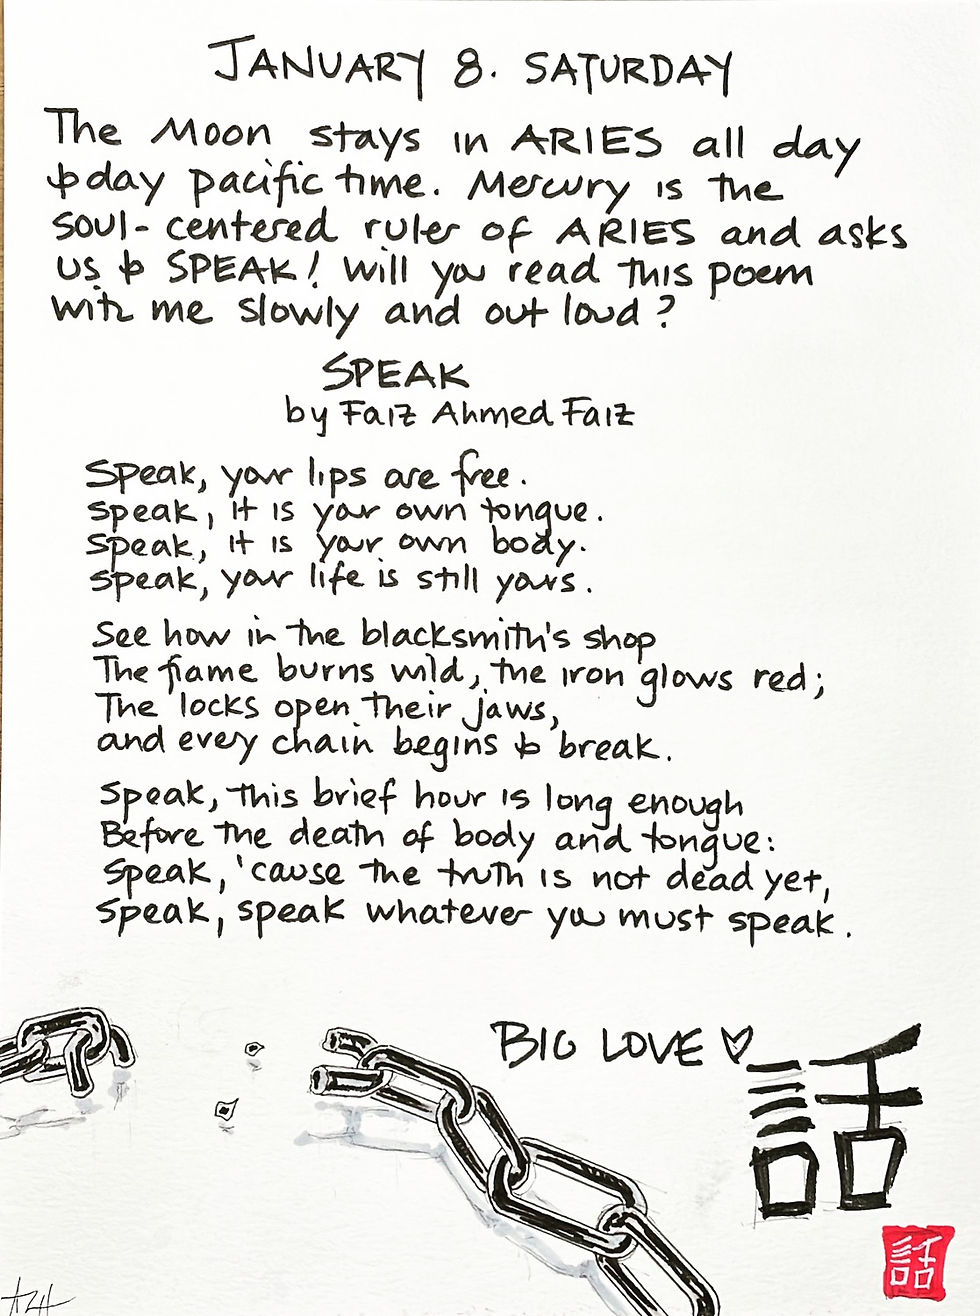 JANUARY 8. SATURDAY
The Moon stays in ARIES all day
today pacific time. Mercury is the
soul-centered ruler of ARIES and asks
us to SPEAK! Will you read this poem
with me slowly and out loud?
SPEAK
by Faiz Ahmed Faiz
Speak, your lips are free.
Speak, it is your own tongue.
Speak, it is your own body.
Speak, your life is still yours.
See how in the blacksmith's shop
The flame burns wild, the iron glows red;
The locks open their jaws,
and every chain begins to break.
Speak, this brief hour is long enough
Before the death of body and tongue:
Speak, 'cause the truth is not dead yet,
Speak, speak whatever you must speak.
BIG LOVE ♡
話
話